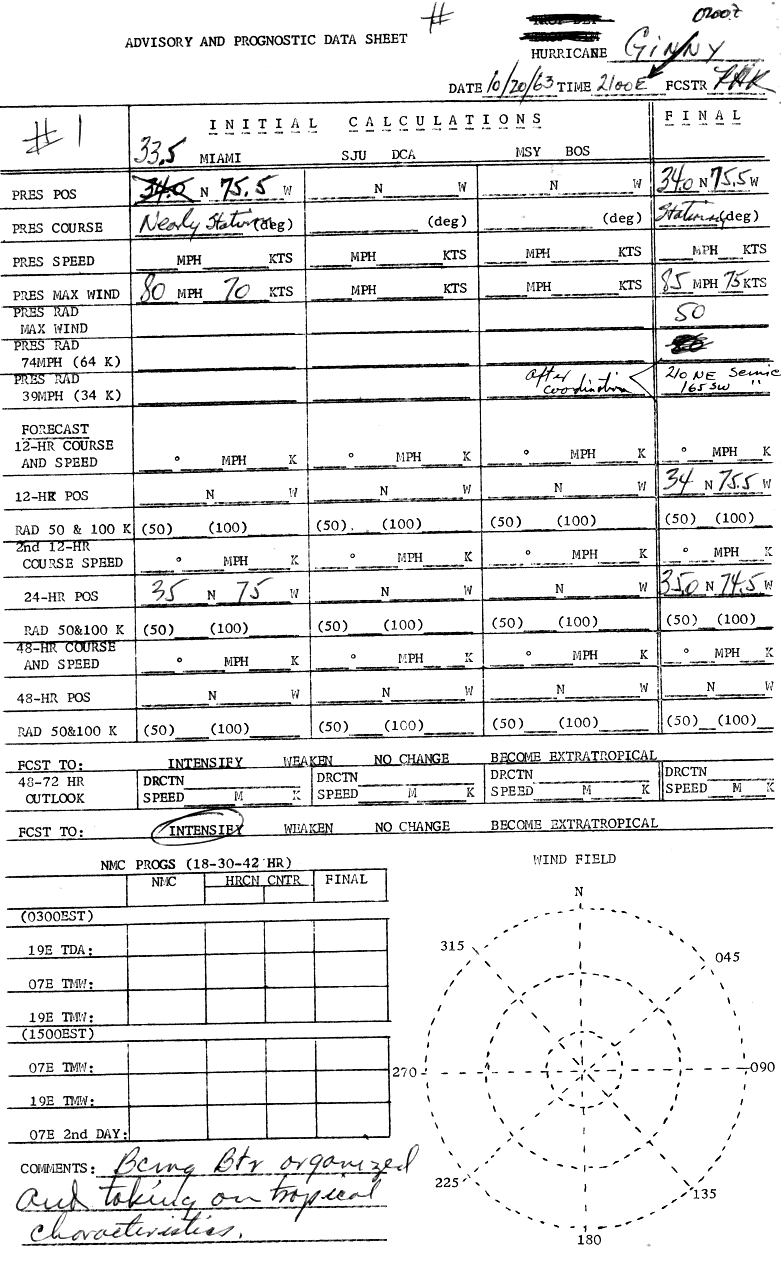 #
0200Z
ADVISORY AND PROGNOSTIC DATA SHEET
HURRICANE GINNY
DATE 10/20/63 TIME 2100E FCSTR
#1
INITIAL CALCULATIONS FINAL
33.5 MIAMI SJU DCA MSY BOS
PRES POS 34.0 N 75.5 W N W N W 34.0 N 75.5 W
PRES COURSE Nearly Station (deg) (deg) (deg) Station (deg)
PRES SPEED MPH KTS MPH KTS MPH KTS MPH KTS
PRES MAX WIND 80 MPH 70 KTS MPH KTS MPH KTS 85 MPH 75 KTS
PRES RAD
MAX WIND 50
PRES RAD
74MPH (64 K)
PRES RAD
39MPH (34 K) after coordination 210 NE Semic
165 SW "
FORECAST
12-HR COURSE
AND SPEED ° MPH K ° MPH K ° MPH K ° MPH K
12-HR POS N W N W N W 34 N 75.5 W
RAD 50 & 100 K (50) (100) (50) (100) (50) (100) (50) (100)
2nd 12-HR
COURSE SPEED ° MPH K ° MPH K ° MPH K ° MPH K
24-HR POS 35 N 75 W N W N W 35.0 N 74.5 W
RAD 50&100 K (50) (100) (50) (100) (50) (100) (50) (100)
48-HR COURSE
AND SPEED ° MPH K ° MPH K ° MPH K ° MPH K
48-HR POS N W N W N W N W
RAD 50&100 K (50) (100) (50) (100) (50) (100) (50) (100)
FCST TO: INTENSIFY WEAKEN NO CHANGE BECOME EXTRATROPICAL
48-72 HR DRCTN DRCTN DRCTN DRCTN
OUTLOOK SPEED M K SPEED M K SPEED M K SPEED M K
FCST TO: INTENSIFY WEAKEN NO CHANGE BECOME EXTRATROPICAL
NMC PROGS (18-30-42 HR)
NMC HRCN CNTR FINAL
(0300EST)
19E TDA:
07E TMW:
19E TMW:
(1500EST)
07E TMW:
19E TMW:
07E 2nd DAY:
WIND FIELD
N
315 045
270 090
225 135
180
COMMENTS: Being Btr organized
and taking on tropical
characteristics.